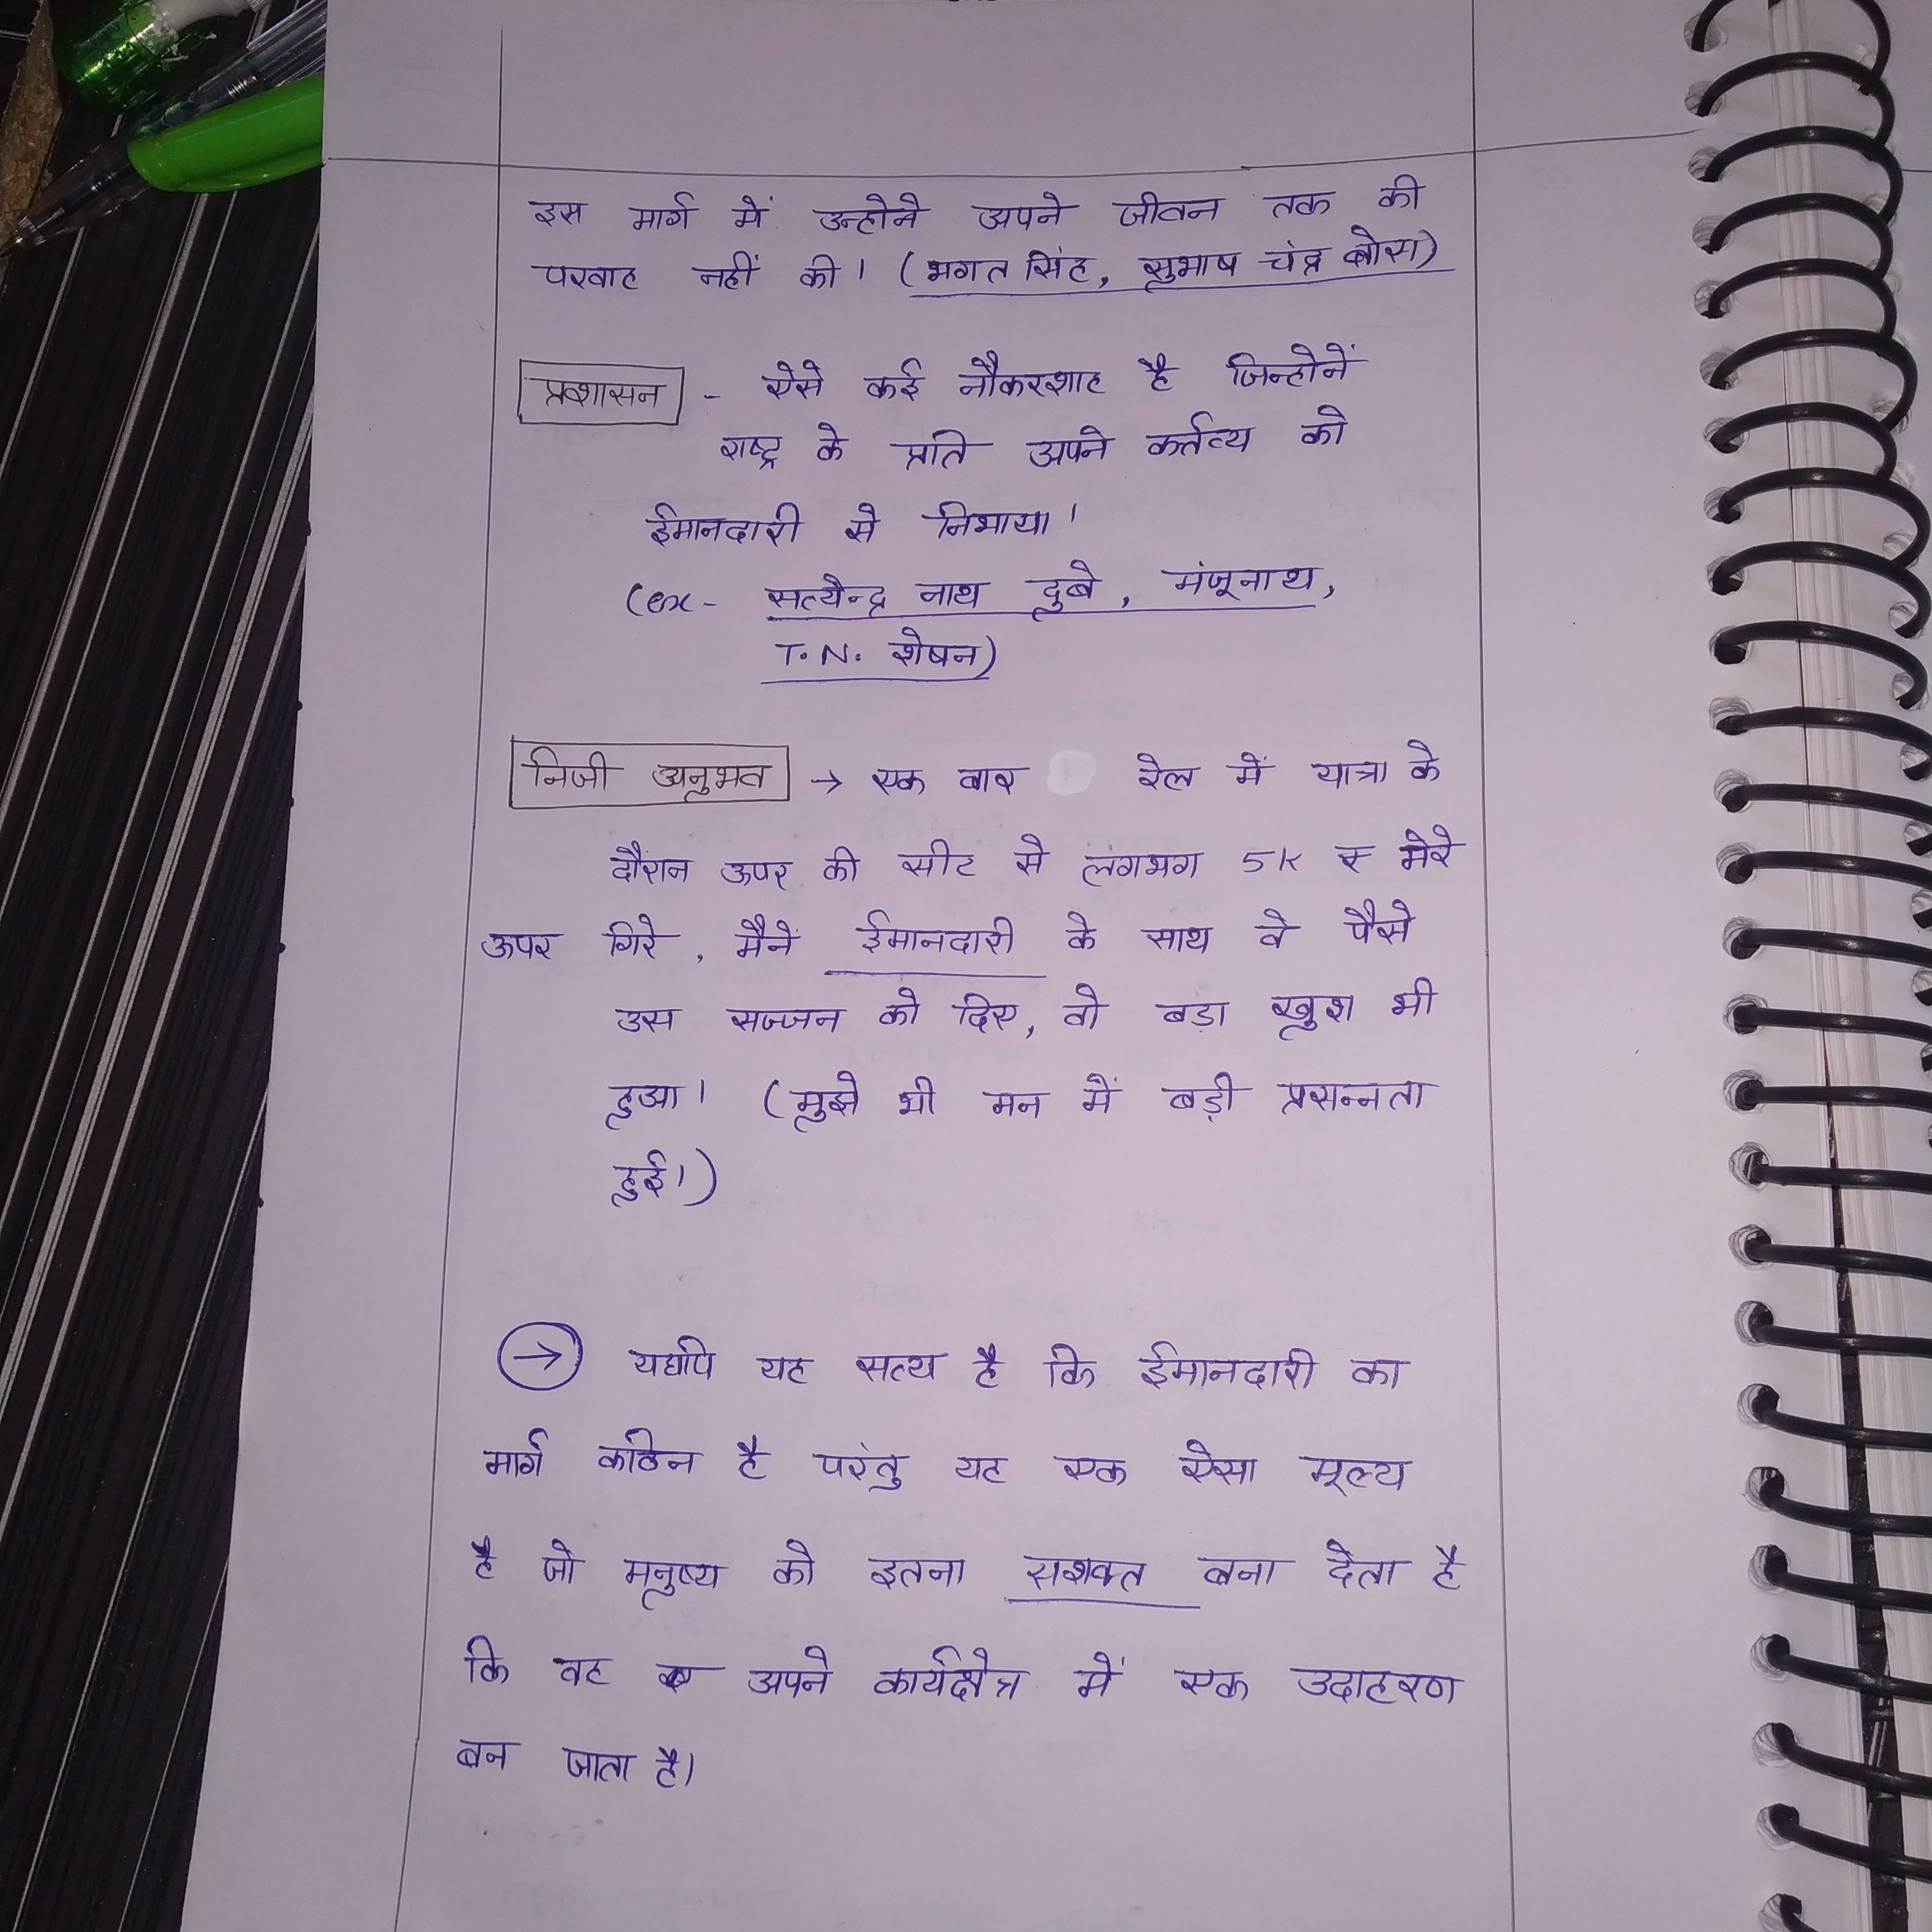 इस मार्ग में उन्होने अपने जीवन तक की
परवाह नहीं की। (भगत सिंह, सुभाष चंद्र बोस)
प्रशासन - ऐसे कई नौकरशाह है जिन्होनें
राष्ट्र के प्रति अपने कर्तव्य को
ईमानदारी से निभाया।
(ex- सत्येन्द्र नाथ दुबे, मंजूनाथ,
T.N. शेषन)
निजी अनुभव → एक बार रेल में यात्रा के
दौरान ऊपर की सीट से लगभग 5K रु मेरे
ऊपर गिरे, मैनें ईमानदारी के साथ वे पैसे
उस सज्जन को दिए, वो बड़ा खुश भी
हुआ। (मुझे भी मन में बड़ी प्रसन्नता
हुई।)
→ यद्यपि यह सत्य है कि ईमानदारी का
मार्ग कठिन है परंतु यह एक ऐसा मूल्य
है जो मनुष्य को इतना सशक्त बना देता है
कि वह अपने कार्यक्षेत्र में एक उदाहरण
बन जाता है।